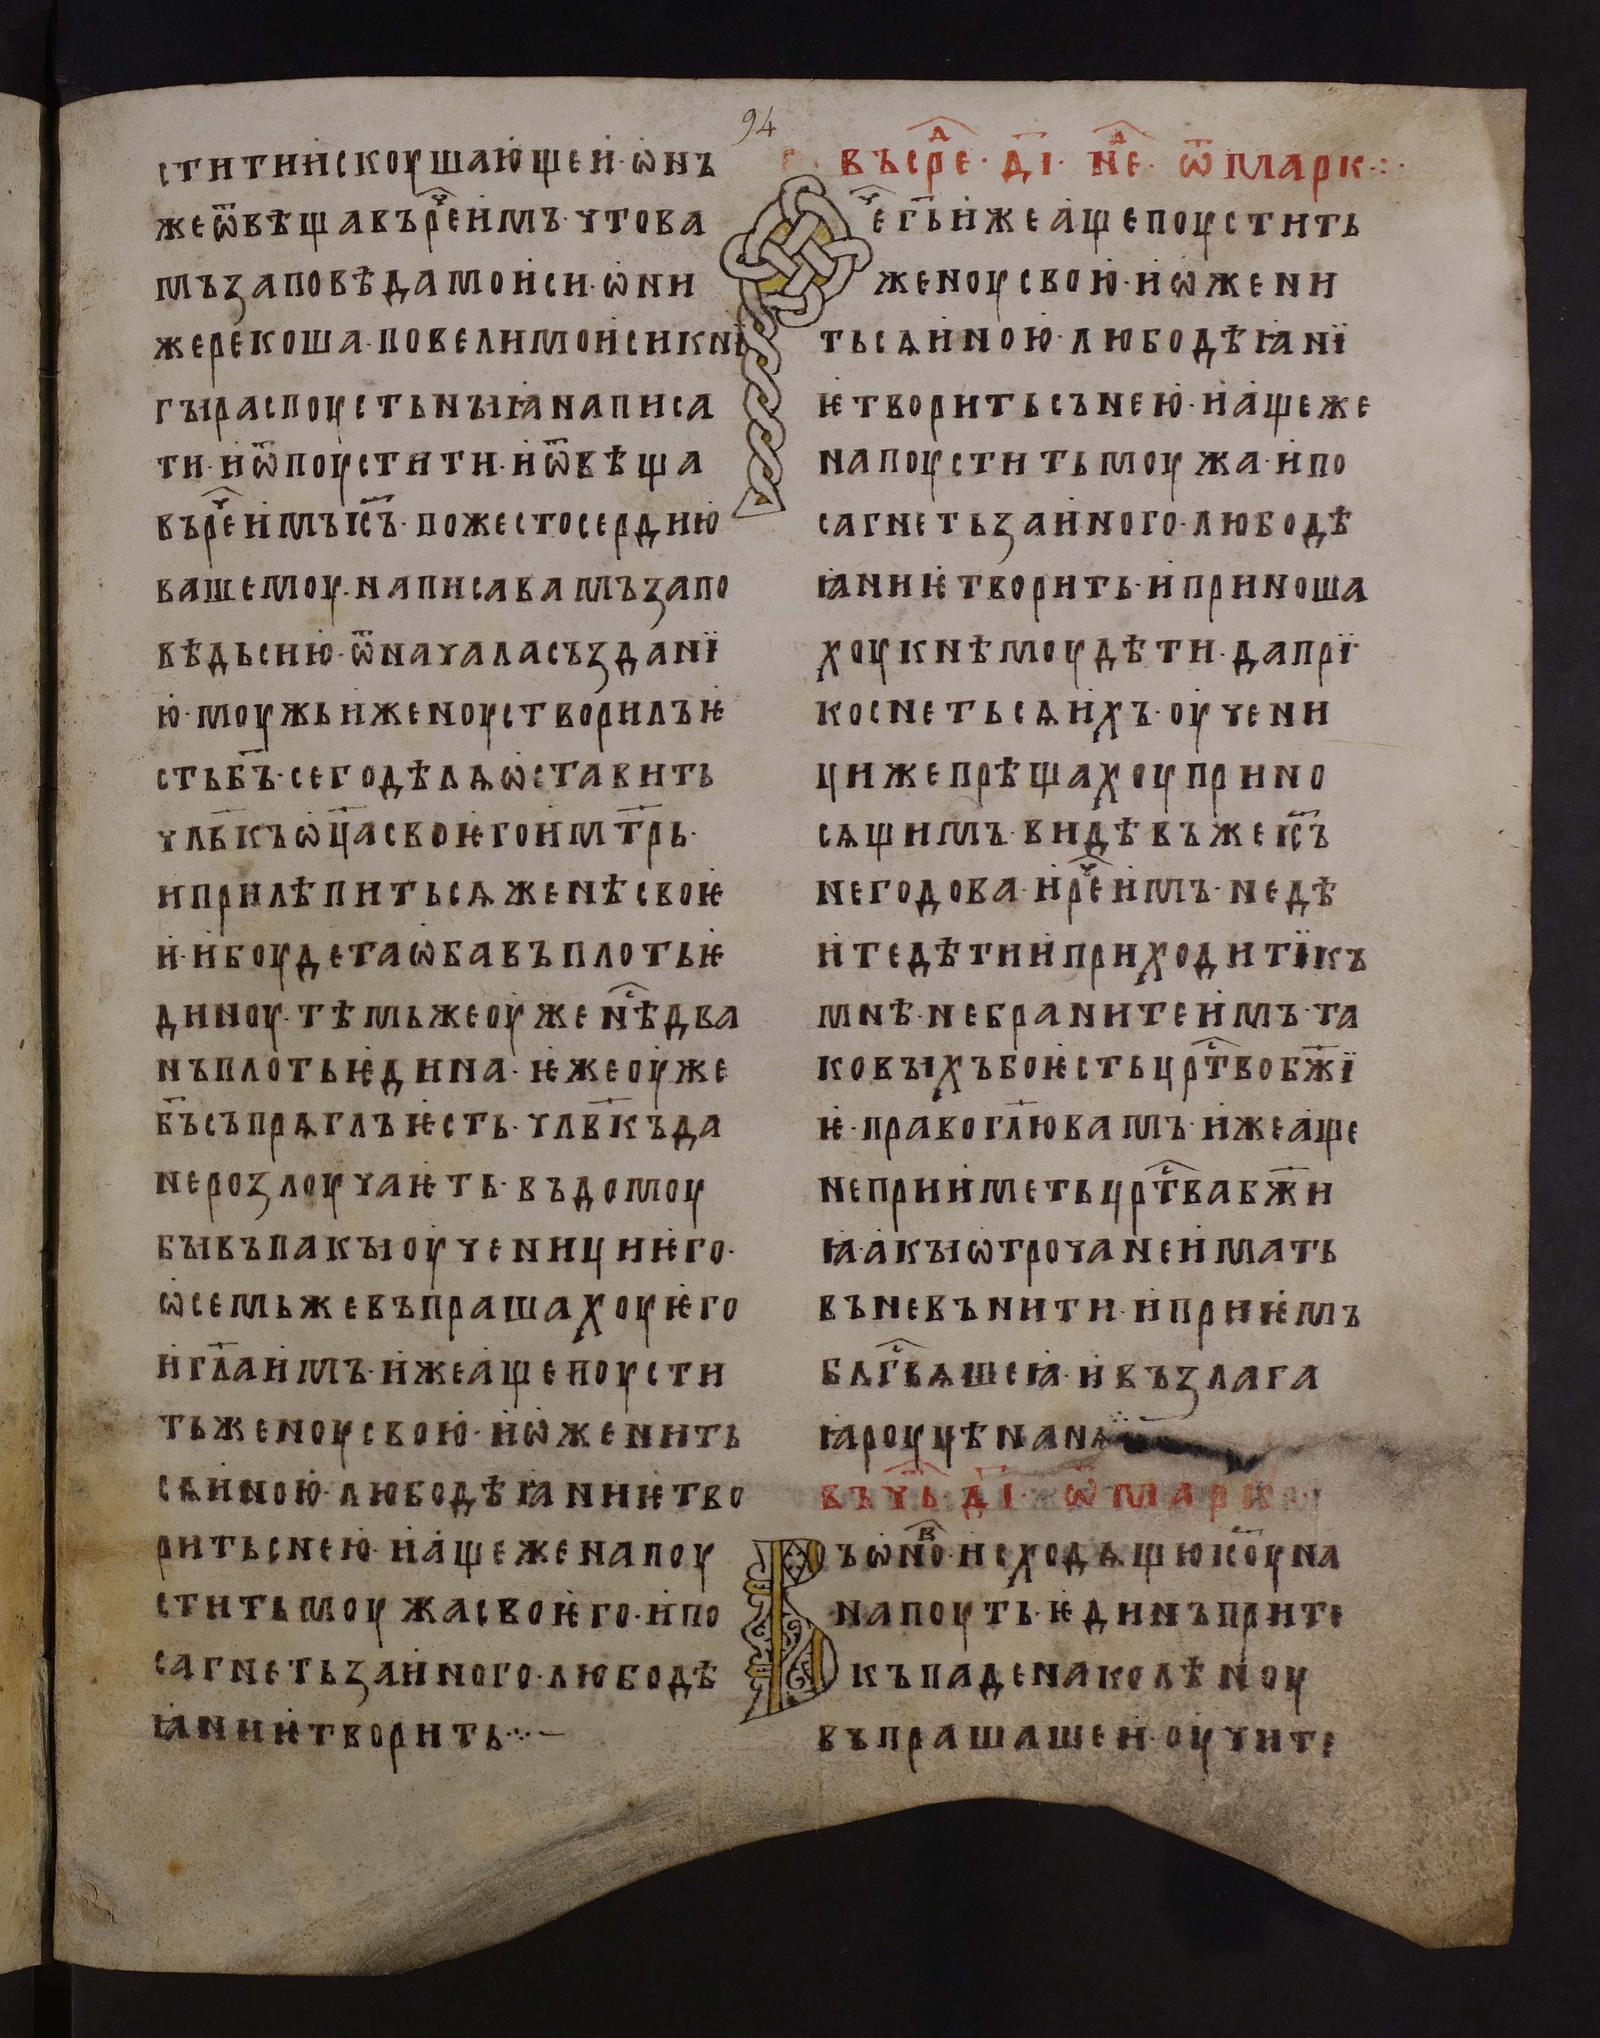 94
стити искоушающеи· ѡнъ
же ѿвѣщавъ рⷱ҇е имъ· что ва
мъ заповѣда моиси· ѡни
же рекоша· повели моиси кни
гы распоустьныꙗ написа
ти· и ѿпоустити· и ѿвѣща
въ рⷱ҇е имъ іс҃ъ· по жестосердию
вашемоу· написа вамъ запо
вѣдь сию· ѿ начала създанї
ю· моужь и женоу створилъ ѥ
сть б҃ъ· сего дѣлѧ ѡставить
чл҃вкъ ѡц҃а своѥго и мт҃рь·
и прилѣпитьсѧ женѣ своѥ
и· и боудета ѡба въ плоть ѥ
диноу· тѣмьже оуже нⷭ҇ѣ два
нъ плоть ѥдина· ѥже оуже
б҃ъ съпрѧглъ ѥсть· чл҃вкъ да
не розлоучаѥть· въ домоу
бывъ пакы оученици ѥго·
ѡ семьже въпрашахоу ѥго
и гл҃а имъ· иже аще поусти
ть женоу свою· и ѡженить
сѧ иною· любодѣꙗниѥ тво
рить с нею· и аще жена поу
стить моужа своѥго· и по
сагнеть за иного· любодѣ
ꙗниѥ творить·:·—
въ срⷣе· д҃і· нⷣе· ѿ марк·:·
Рⷱ҇е г҃ь иже аще поустить
женоу свою· и ѡжени
тьсѧ иною· любодѣꙗнї
ѥ творить съ нею· и аще же
на поустить моужа· и по
сагнеть за иного· любодѣ
ꙗниѥ творить· и приноша
хоу к нѣмоу дѣти· да прї
коснетьсѧ ихъ· оучени
ци же прѣщахоу прино
сѧщимъ· видѣвъ же іс҃ъ
негодова· и рⷱ҇е имъ· не дѣ
ите дѣтии приходитї къ
мнѣ· не браните имъ· та
ковыхъ бо ѥсть црⷭ҇тво бж҃ї
ѥ· право гл҃ю вамъ· иже аще
не прииметь црⷭ҇тва бж҃и
ꙗ· акы ѡтроча не имать
въ не вънити· и приѥмъ
блⷭ҇гвѧше ꙗ· и възлага
ꙗ роуцѣ на нѧ
въ чⷮь· д҃і· ѿ марк
Въ ѡⷡно· исходѧщю іс҃оу на
на поуть· ѥдинъ прите
къ паде на колѣноу
въпрашаше и· оучите